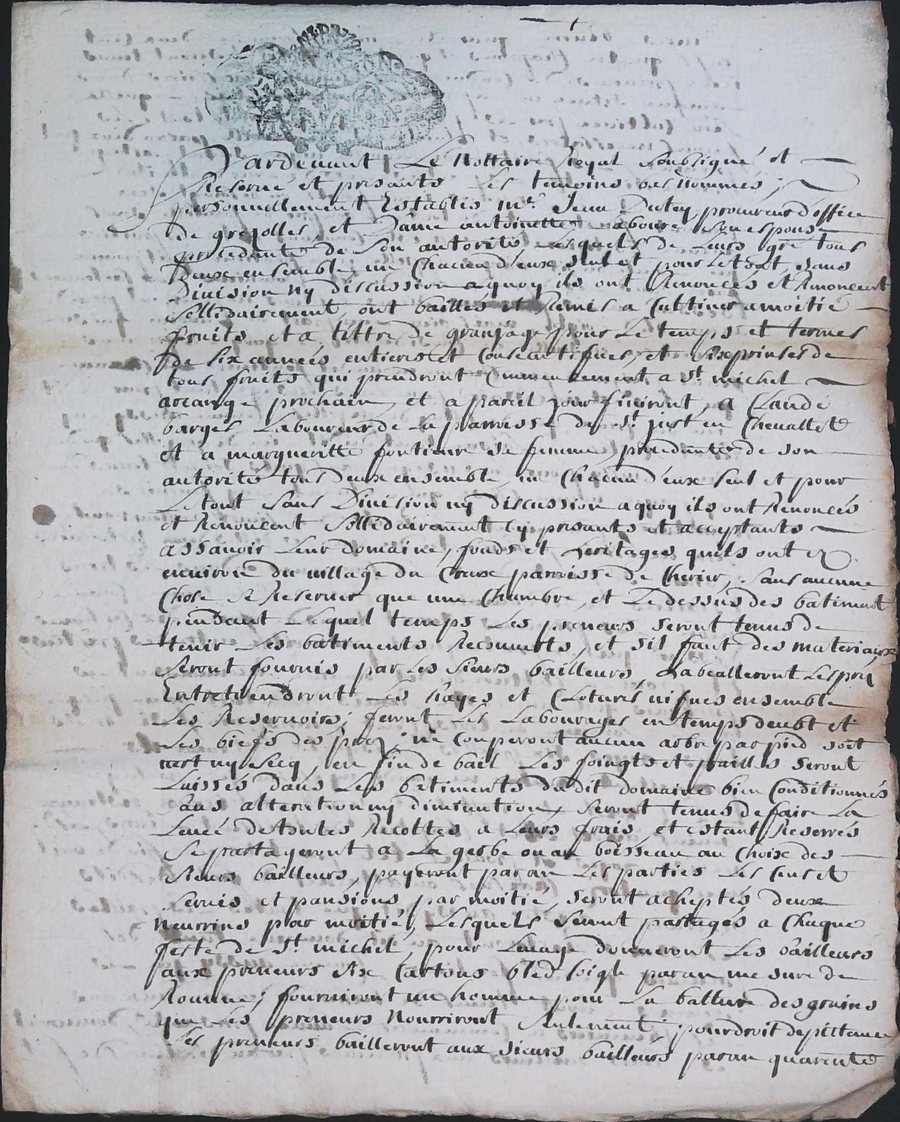 Pardevant Le Nottaire Royal Soubsigné et
Reservé et presants Les temoins bas nommés,
personnellement Establis Mre Jean procureur d'office
de grezolles et Dame antoinette son espouse
procedante de Son autorité Lesquels de Leurs gré tous
Deux ensemble un Chacun d'eux seul et pour Le tout sans
Division ny discussion a quoy ils ont Renoncés et Renoncent
Sollidairement, ont baillés et Remis a Cultiver a moitié
fruits et a tittre de granjage pour Le temps et termes
de six années entieres et Consecutifves, et Six prinses de
tous fruits qui prendront Commencement a St michel
arcange prochain, et a pareil jour finiront, a Claude
barges Laboureur de La parroisse de St just en Chevallet
et a margueritte sa femme procedante de son
autorité tous deux ensemble un Chacun d'eux seul et pour
Le tout sans Division ny discussion a quoy ils ont Renoncés
et Renoncent Sollidairement Cy presants et acceptants
assavoir Leur domaine, fonds et heritages quils ont
environ du village du parroisse de Cherier, sans aucune
Chose Reserver que une Chambre, et Le dessus des batiments
pendant Lequel temps Les preneurs seront tenus de
tenir Les batiments Recouverts, et sil faut des materiaux
Seront fournis par Les sieurs bailleurs,
Entretiendront Les hayes et Clotures vifves ensemble
Les Reservoirs, feront Les Labourages en temps deubt et
Les biefs des prez, ne Couperont aucun arbre par pied soit
vert ny secq, en fin de bail Les foingts et pailles seront
Laissés dans Les bâtiments dudit domaine bien Conditionnés
sans alteration ny diminution, seront tenus de faire La
Levée de toutes Recottes a Leurs frais, et estant Reservés
Se partageront a La gerbe ou au boisseau au Choix des
sieurs bailleurs, payeront par an Les parties Les Cens et
Servis et pansions par moitié, seront acheptés deux
nourrins par moitié, Lesquels seront partagés a Chaque
feste de St michel, pour donneront Les bailleurs
aux preneurs six Cartons bled seigle par an mesure de
Roanne, fourniront un homme pour La batture des grains
que Les preneurs nourriront seulement, pour droit de pittance
Les preneurs bailleront aux sieurs bailleurs par an quarante